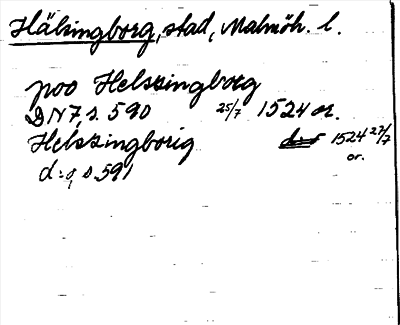 Hälsingborg, stad, Malmöh. l.
poo Helszingborg
DN 7, s. 590 25/7 1524 or.
Helszingborig 1524 27/7
or.
d:o, s. 591